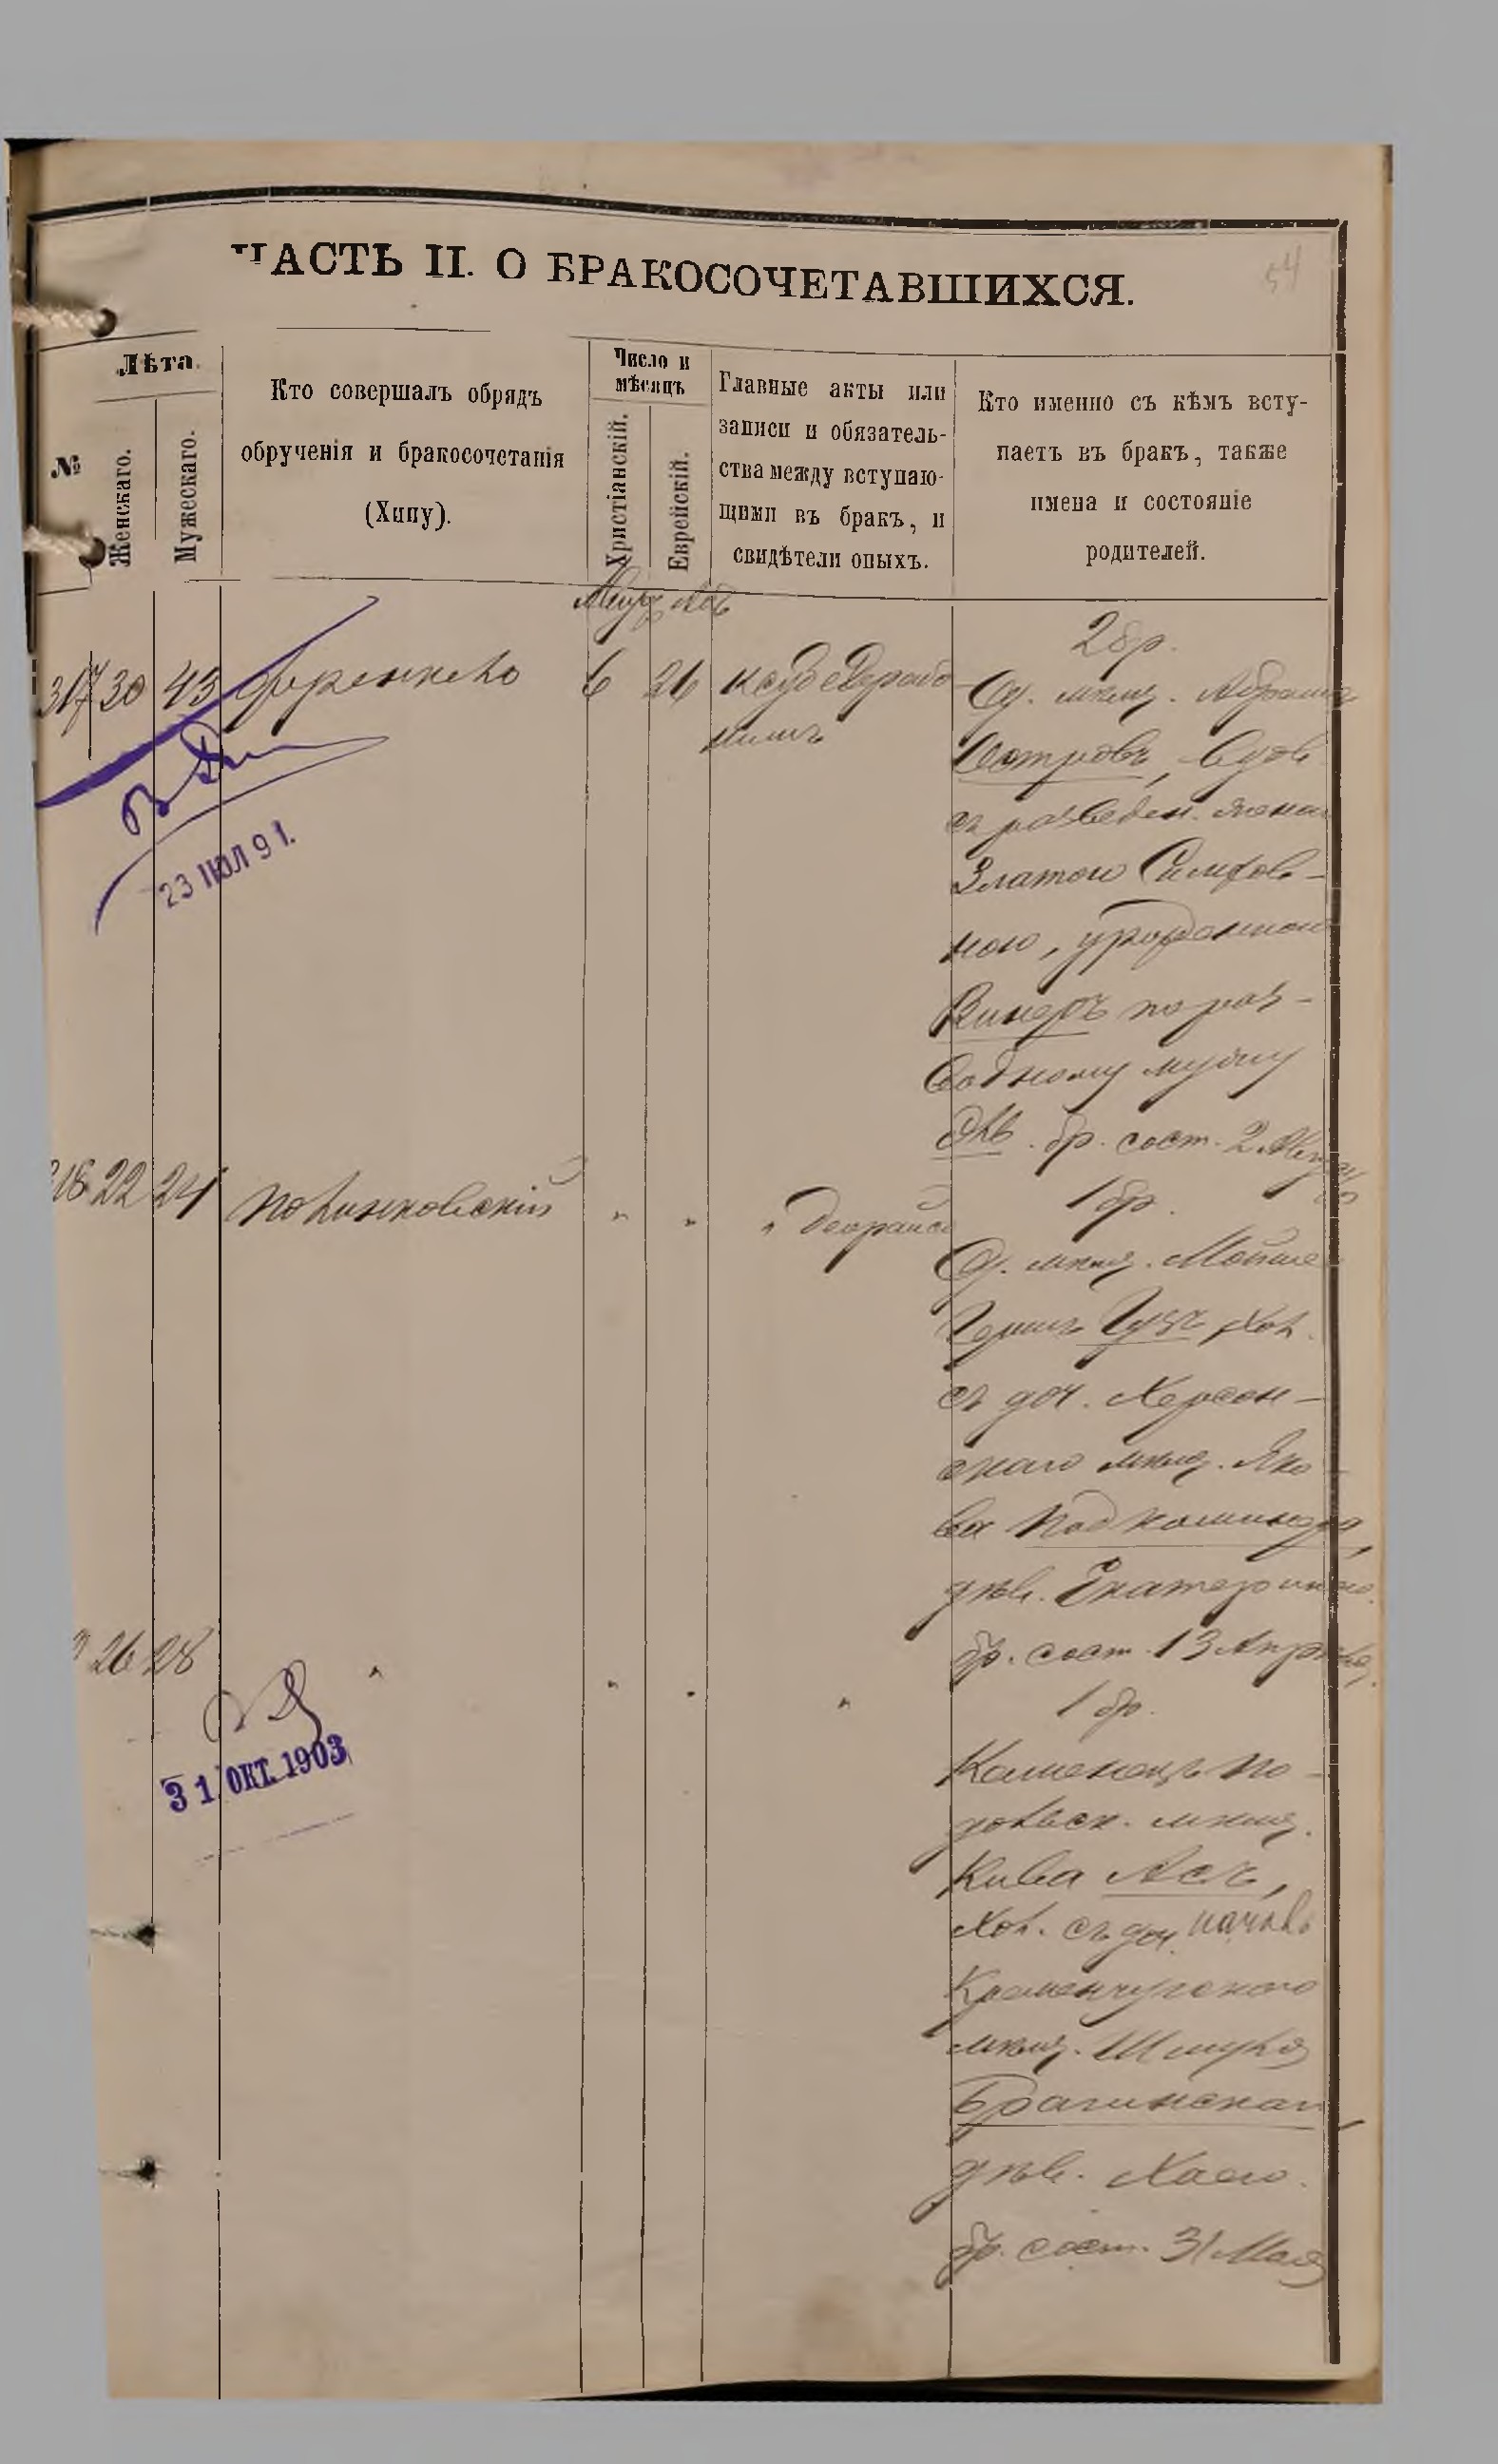 ЧАСТЬ II. О БРАКОСОЧЕТАВШИХСЯ.
54
№
Лѣта.
Женскаго.
Мужескаго.
Кто совершалъ обрядъ
обрученія и бракосочетанія
(Хупу).
Число и
мѣсяцъ
Христіанскій.
Еврейскій.
Главные акты или
записи и обязатель-
ства между вступаю-
щими въ бракъ, и
свидѣтели оныхъ.
Кто именно съ кѣмъ всту-
паетъ въ бракъ, также
имена и состояніе
родителей.
Авг. Абъ
317 30 43 Френкель 6 26
2 бр.
Од. мѣщ. Абрамъ
Островъ, вдов.
съ разведен. женою
Златою Симхов-
ною, урожденною
Винеръ по раз-
водному мужу
бр. сост. 2 Август
23 ІЮЛ 91.
318 22 24 Полинковскій " " "
1 бр.
Од. мѣщ. Мойше
Гершъ Гузъ, хол.
съ доч. Херсон-
скаго мѣщ. Яко-
ва Подкаминера,
дѣв. Екатериною.
бр. сост. 13 Апрѣля.
26 28 " " " "
1 бр.
Каменецъ По-
дольск. мѣщ.
Кива Асъ,
хол. съ доч.
Кременчугскаго
мѣщ. Шмуля
Брагинскаго,
дѣв. Хаею.
бр. сост. 31 Мая
31 ОКТ. 1903